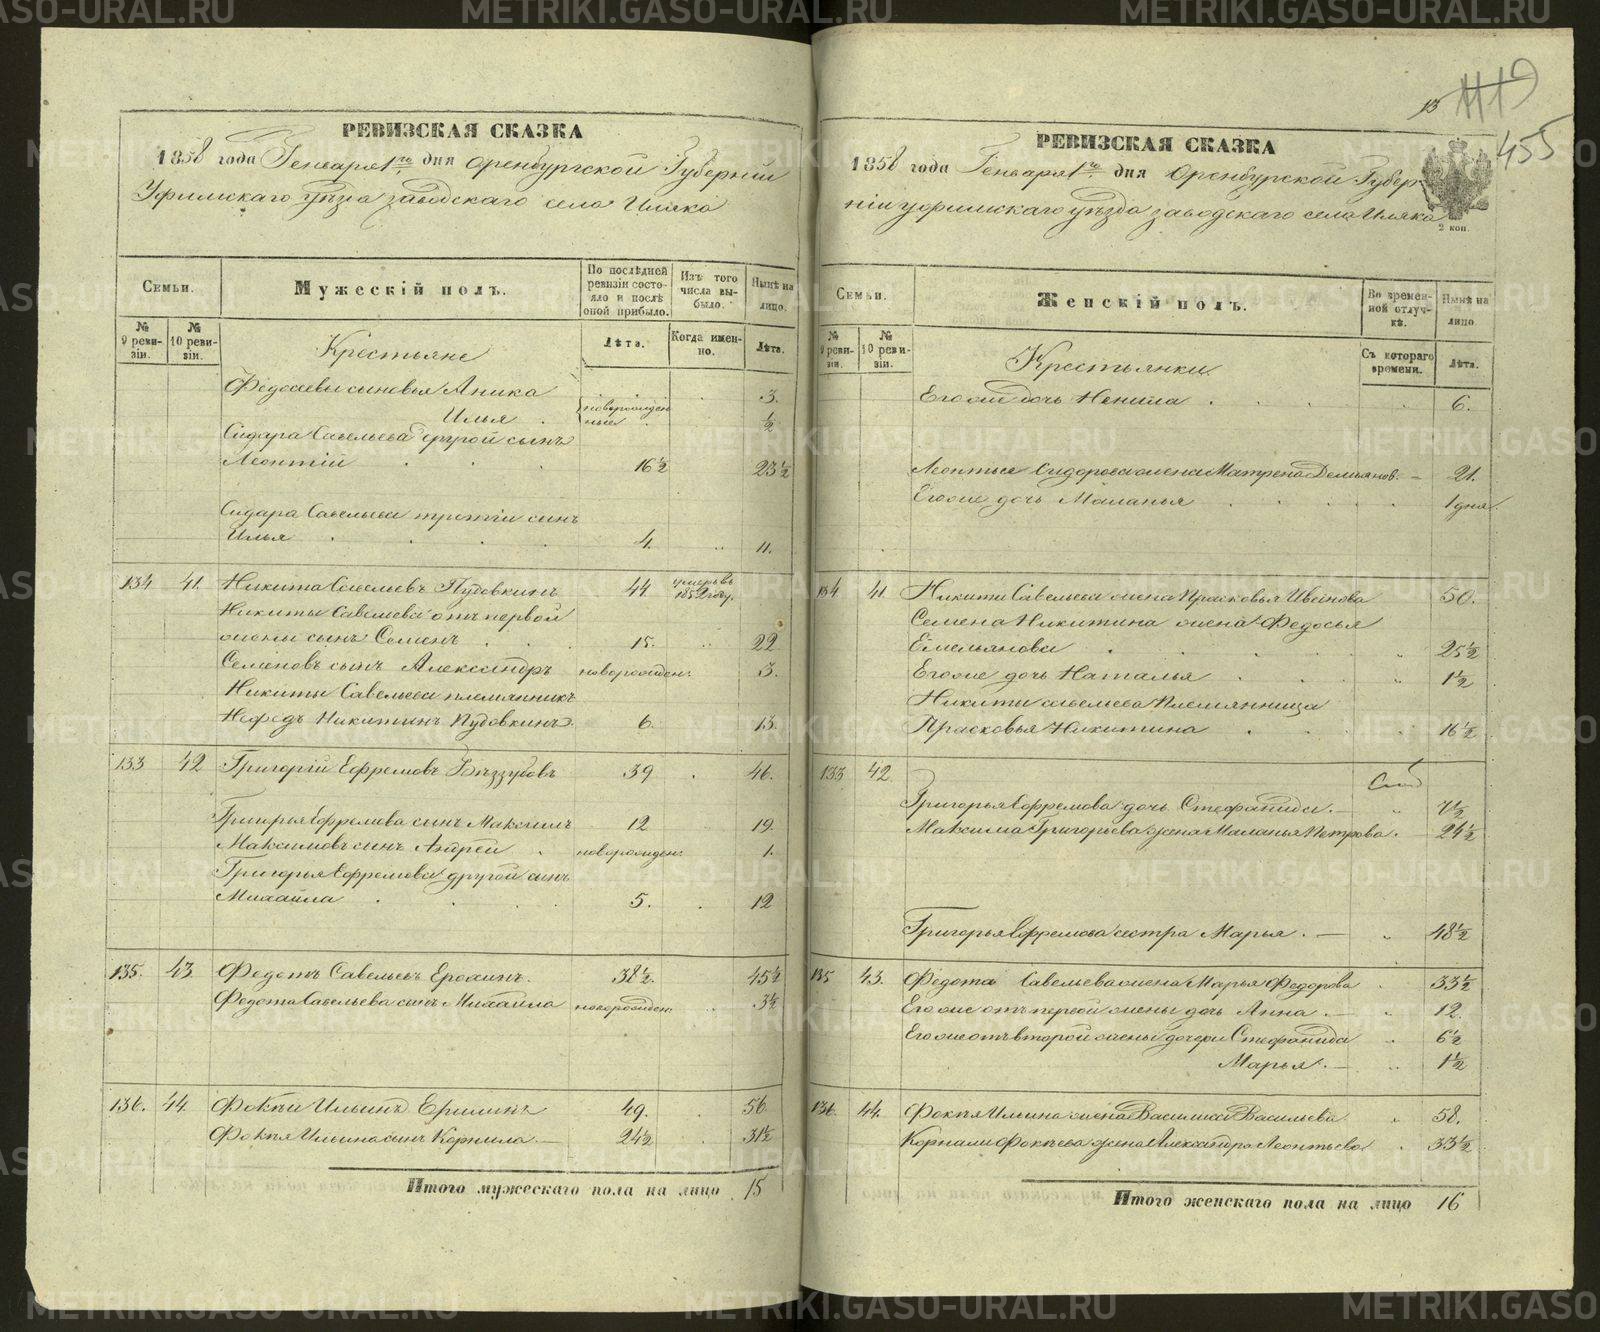 METRIKI.GASO-URAL.RU
РЕВИЗСКАЯ СКАЗКА
1858 года Генваря 1го дня Оренбургской Губерніи
Уфимскаго уѣзда заводскаго села Иляка
Семьи.
Мужескій полъ.
По послѣдней ревизіи состояло и послѣ оной прибыло.
Изъ того числа выбыло.
Нынѣ на лицо.
№ 9 ревизіи.
№ 10 ревизіи.
Крестьяне
Лѣта.
Когда именно.
Лѣта.
Федосеевы сыновья Аника . . 3.
Илья . новорожденные . ½
Сидара Савельева другой сынъ
Леонтій . . . 16½ 23½
Сидара Савельева третій сынъ
Илья . . . 4. .. 11.
134 41. Никита Савельевъ Пудовкинъ 44 умеръ въ 1852 году.
Никиты Савельева отъ первой
жены сынъ Семенъ . . 15. .. 22
Семеновъ сынъ Александръ новорожден: 3.
Никиты Савельева племянникъ
Нефедъ Никитинъ Пудовкинъ. 6. . 13.
133 42 Григорій Ефремовъ Беззубовъ 39 . 46.
Григорья Ефремова сынъ Максимъ 12 19.
Максимовъ сынъ Андрей . новорожден: 1.
Григорья Ефремова другой сынъ
Михайла . . . 5. . 12
135. 43. Федотъ Савельевъ Ерохинъ. 38½. 45½
Федота Савельева сынъ Михайла новорожден: .. 3½
136. 44 Фокѣй Ильинъ 49. . 56
Фокѣя Ильина сынъ Корнила. — 24½ . 31½
Итого мужескаго пола на лицо . 15
13
455
РЕВИЗСКАЯ СКАЗКА
1858 года Генваря 1го дня Оренбургской Губер-
ніи уфимскаго уѣзда заводскаго села Иляка
2 коп.
Семьи.
Женскій полъ.
Во временной отлучкѣ.
Нынѣ на лицо.
№ 9 ревизіи.
№ 10 ревизіи.
Крестьянки
Съ котораго времени.
Лѣта.
Егоже дочь Ненила . . . 6.
Леонтья Сидорова жена Матрена Демьянов. — 21.
Егоже дочь Маланья . . . . 1 дня.
134 41. Никиты Савельева жена Прасковья Иванова 50.
Семена Никитина жена Федосья
Емельянова . . . 25½
Егоже дочь Наталья . . . 1½
Никиты Савельева племянница
Прасковья Никитина . . . 16½
133 42.
Григорья Ефремова дочь Стефанида. — .. 7½
Максима Григорьева жена Маланья Петрова. 24½
Григорья Ефремова сестра Марья. — .. 48½
135 43. Федота Савельева жена Марья Федорова . 33½
Егоже отъ первой жены дочь Анна. — .. 12.
Егоже отъ второй жены дочери Стефанида .. 6½
Марья. — .. 1½
136 44. Фокѣя Ильина жена Василиса Васильева .. 58.
Корнилы Фокѣева жена Александра Леонтьева . 33½
Итого женскаго пола на лицо 16